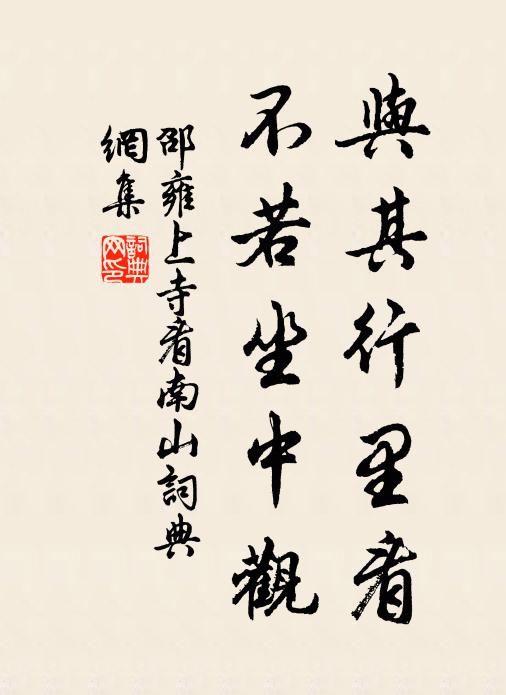 與其行里看
不若坐中觀
邵雍上寺看南山詞典
網集
詞典
网印